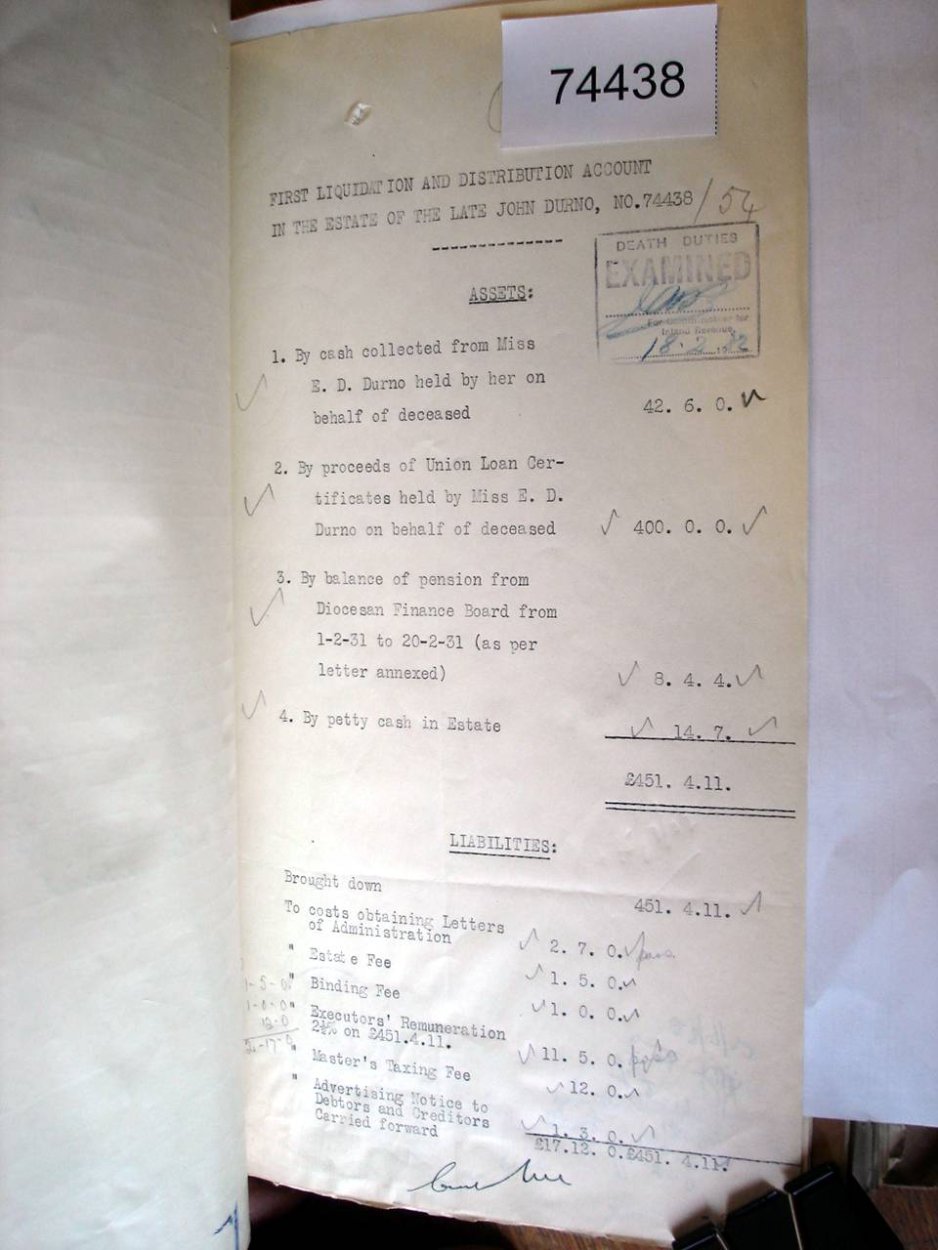 74438
FIRST LIQUIDATION AND DISTRIBUTION ACCOUNT
IN THE ESTATE OF THE LATE JOHN DURNO, NO.74438/54
DEATH DUTIES
EXAMINED
Inland Revenue.
18.2.32
ASSETS:
1. By cash collected from Miss
E. D. Durno held by her on
behalf of deceased 42. 6. 0.
2. By proceeds of Union Loan Cer-
tificates held by Miss E. D.
Durno on behalf of deceased 400. 0. 0.
3. By balance of pension from
Diocesan Finance Board from
1-2-31 to 20-2-31 (as per
letter annexed) 8. 4. 4.
4. By petty cash in Estate 14. 7.
£451. 4.11.
LIABILITIES:
Brought down 451. 4.11.
To costs obtaining Letters
of Administration 2. 7. 0.
" Estate Fee 1. 5. 0.
1-5-0 " Binding Fee 1. 0. 0.
1-0-0 " Executors' Remuneration
12-0 2½% on £451.4.11. 11. 5. 0.
2-17-0 " Master's Taxing Fee 12. 0.
" Advertising Notice to
Debtors and Creditors 1. 3. 0.
Carried forward £17.12. 0.£451. 4.11.